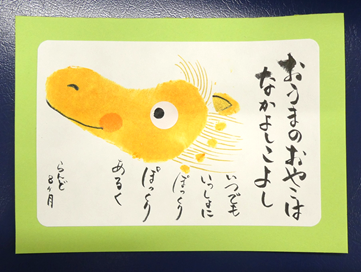 おうまのおやこは
なかよしこよし
いつでも
いっしょに
ぽっくり
ぽっくり
あるく
らんど
8ヶ月